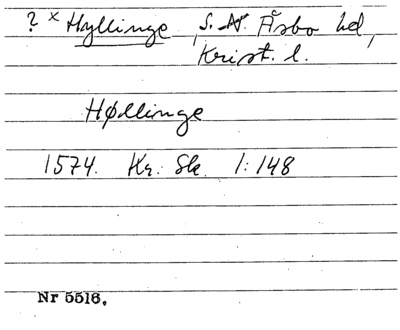 ? x Hyllinge, S. Åsbo hd,
Krist. l.
Høllinge
1574. Kr. Sk. 1:148
Nr 5516.